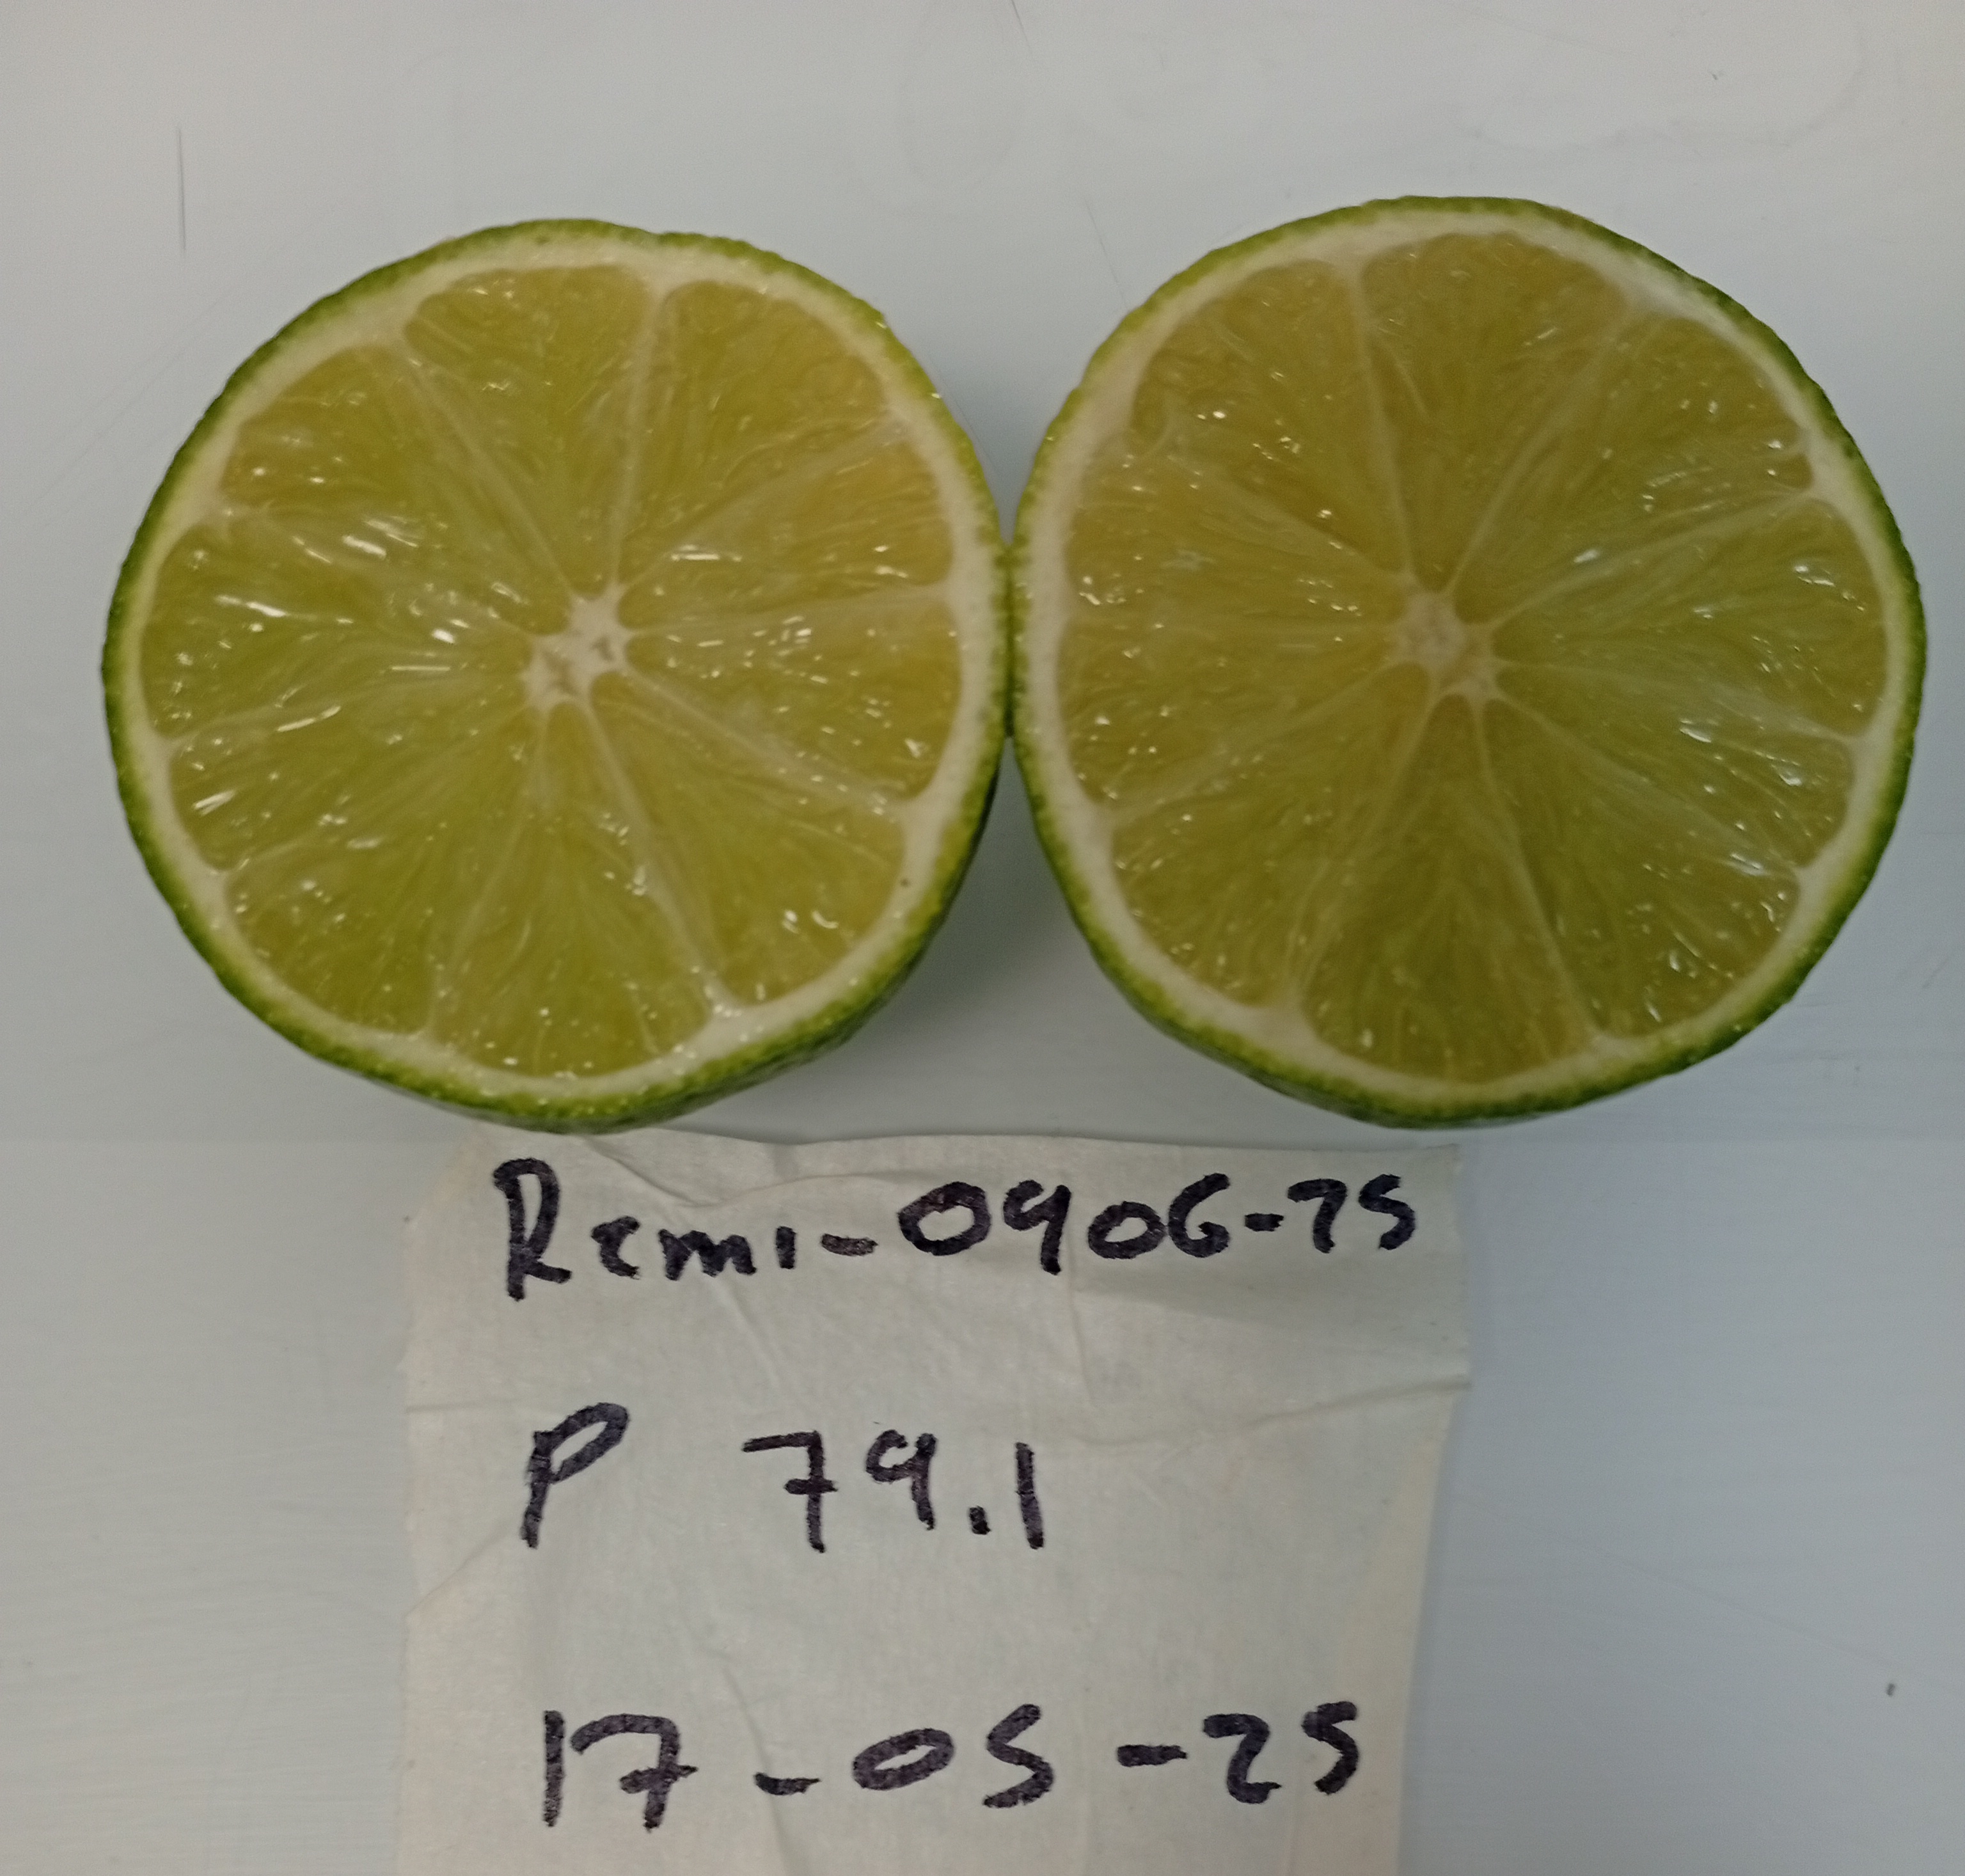 Remi-0906-25
P 79.1
17-05-25